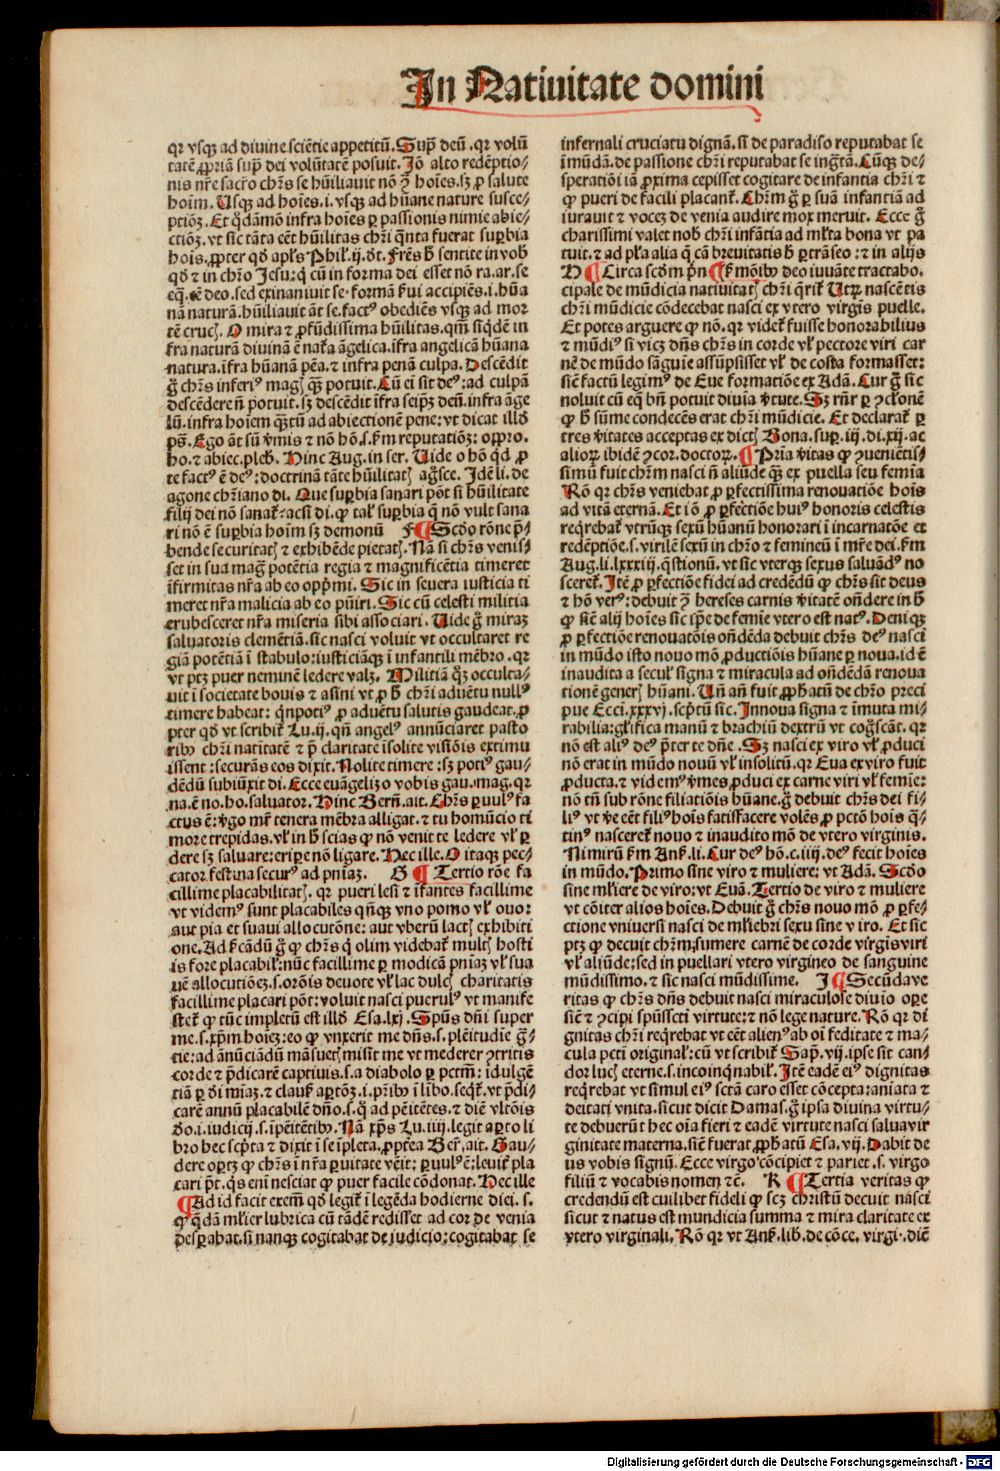 In Natiuitate domini
qr vsq3 ad diuine sciẽtie appetitũ. Sup̃ deũ. qr volũ
tatẽ ꝓpriã sup̃ dei volũtatẽ posuit. Jõ alto redẽptio⸗
nis nr̃e sacro chr̃s se hũiliauit nõ ꝯ hoĩes. sꝫ ꝓ salute
hoim̃. Usqꝫ ad hoĩes. i. vsqꝫ ad hũane nature susce⸗
ptiõꝫ. Et q̃dãmõ infra hoĩes ꝑ passionis nimie abie⸗
ctiõꝫ. vt sic tãta eẽt hũilitas chr̃i q̃nta fuerat suꝑbia
hois. ꝓpter qd̃ apl̃s Phil̃. ij. dt̃. Frẽs h̃ sentite in vob̃
qd̃ ⁊ in chr̃o Jesu: q̃ cũ in forma dei esset nõ ra. ar. se
eq̃. eẽ deo. sed exinaniuit se. formã ẜui accipiẽs. i. hũa
nã naturã. hũiliauit ãt se. factꝰ obediẽs vsqꝫ ad mor
tẽ crucꝭ. O mira ⁊ ꝓfũdissima hũilitas. qm̃ siq̃dẽ in
fra naturã diuinã ẽ nat̃a ãgelica. ĩfra angelicã hũana
natura. ĩfra hũanã pẽa. ⁊ infra penã culpa. Descẽdit
g̃ chr̃s inferiꝰ magꝭ qꝫ potuit. Cũ ei sit deꝰ: ad culpã
descẽdere ñ potuit. sꝫ descẽdit ĩfra seipꝫ deũ. infra ãge
lũ. infra hoiem q̃ꝫtũ ad abiectionẽ pene: vt dicat illd̃
ps̃. Ego ãt sũ ṽmis ⁊ nõ hõ. s. ẜm reputatiõꝫ: oppro.
ho. ⁊ abiec. pleb̃. Hinc Aug. in ser. Uide o hõ qd̃ ꝓ
te factꝰ ẽ deꝰ: doctrinã tãte hũilitatꝭ ag̃sce. Jdẽ li. de
agone chr̃iano di. Que suꝑbia sanari põt si hũilitate
filij dei nõ sanat̃: acsi di. ꝙ talꝭ suꝑbia q̃ nõ vult sana
ri nõ ẽ suꝑbia hoim̃ sꝫ demonũ F ¶ Scdo rõne p̃⸗
bende securitatꝭ ⁊ exhibẽde pietatꝭ. Nã si chr̃s venis⸗
set in sua mag̃ potẽtia regia ⁊ magnificẽtia timeret
ĩfirmitas nr̃a ab eo opp̃mi. Sic in seuera iusticia ti
meret nr̃a malicia ab eo pũiri. Sic cũ celesti militia
erubesceret nr̃a miseria sibi associari. Uide g̃ miraꝫ
saluatoris clemẽtiã. sic nasci voluit vt occultaret re
giã potẽtiã ĩ stabulo: iusticiãqꝫ ĩ infantili mẽbro. qr
vt ptꝫ puer neminẽ ledere valꝫ. Militiã qꝫ occulta⸗
uit ĩ societate bouis ⁊ asini vt ꝓ h̃ chr̃i aduẽtu nullꝰ
timere habeat: q̃npotiꝰ ꝓ aduẽtu salutis gaudeat. ꝓ
pter qd̃ vt scribit̃ Lu. ij. qñ angelꝰ annũciaret pasto
ribꝰ chr̃i natitatẽ ⁊ p̃ claritate ĩsolite visiõis extimu
issent: securãs eos dixit. Nolite timere: sꝫ potiꝰ gau⸗
dẽdũ subiũxit di. Ecce euãgelizo vobis gau. mag. qr
na. ẽ no. ho. saluator. Hinc Berñ. ait. Chr̃s ꝑuulꝰ fa
ctus ẽ: ṽgo mr̃ tenera mẽbra alligat. ⁊ tu homũcio ti
more trepidas. vl̃ in h̃ scias ꝙ nõ venit te ledere vl̃ ꝑ
dere sꝫ saluare: eripe nõ ligare. Hec ille. O itaqꝫ pec⸗
cator festina securꝰ ad pñiaꝫ. G ¶ Tertio rõe fa
cillime placabilitatꝭ. qr pueri lesi ⁊ ĩfantes facillime
vt videmꝰ sunt placabiles qñqꝫ vno pomo vl̃ ouo:
aut pia et suaui allocutõne: aut vberũ lactꝭ exhibiti
one. Ad ẜcãdũ g̃ ꝙ chr̃s q̃ olim videbat̃ multꝭ hosti
is fore placabil̃: nũc facillime ꝑ modicã pñiaꝫ vl̃ sua
uẽ allocutiõeꝫ. s. orõis deuote vl̃ lac dulcꝭ charitatis
facillime placari põt: voluit nasci puerulꝰ vt manife
stet̃ ꝙ tũc impletũ est illd̃ Esa. lxj. Spũs dñi super
me. s. xp̃m hoieꝫ: eo ꝙ vnxerit me dñs. s. plẽitudie g̃⸗
tie: ad ãnũciãdũ mãsuetꝭ misit me vt mederer ꝯtritis
corde ⁊ p̃dicarẽ captiuis. s. a diabolo ꝑ pctm̃: idulgẽ
tiã ꝑ di miaꝫ. ⁊ clausꝭ aꝑtõꝫ. i. pr̃ibꝰ ĩ lĩbo. seq̃t̃. vt p̃di⸗
carẽ annũ placabilẽ dño. s. q̃ ad pẽitẽtes. ⁊ diẽ vltõis
do. i. iudicij. s. ĩpẽitẽtibꝰ. Nã xp̃s Lu. iiij. legit aꝑto li
bro hec scp̃ta ⁊ dixit ĩ se ĩpleta. ꝓpt̃ea Ber̃. ait. Gau⸗
dere oꝑtꝫ ꝙ chr̃s ĩ nr̃a ꝑuitate vẽit: ꝑuulꝰ ẽ: leuit̃ pla
cari p̃t. q̃s eni nesciat ꝙ puer facile cõdonat. Hec ille
¶ Ad id facit exem̃ qd̃ legit̃ ĩ legẽda hodierne diei. s.
ꝙ q̃dã ml̃ier lubrica cũ tãdẽ redisset ad cor de venia
desꝑabat. si nanqꝫ cogitabat de judicio: cogitabat se
infernali cruciatu dignã. si de paradiso reputabat se
ĩmũdã. de passione chr̃i reputabat se ing̃tã. Cũqꝫ de⸗
speratiõi iã ꝓxima cepisset cogitare de infantia chr̃i ⁊
ꝙ pueri de facili placant̃. Chr̃m g̃ ꝑ suã infantiã ad
iurauit ⁊ voceꝫ de venia audire mox meruit. Ecce g̃
charissimi valet nob̃ chr̃i infãtia ad ml̃ta bona vt pa
tuit. ⁊ ad pl̃a alia q̃ cã breuitatis h̃ ꝑtrãseo: ⁊ in alijs
H ¶ Circa scd̃m p̃n ¶ ẜmõibꝰ deo iuuãte tractabo.
cipale de mũdicia natiuitatꝭ chr̃i q̃rit̃ Utꝝ nascẽtis
chr̃i mũdicie cõdecebat nasci ex vtero virgĩs puelle.
Et potes arguere ꝙ nõ. qr videt̃ fuisse honorabilius
⁊ mũdiꝰ si vicꝫ dñs chr̃s in corde vl̃ pectore viri car
nẽ de mũdo sãguie assũpsisset vl̃ de costa formasset:
siẽ factũ legimꝰ de Eue formatiõe ex Adã. Cur g̃ sic
noluit cũ eq̃ bñ potuit diuia ṽtute. Sꝫ rñr ꝑ ꝯclonẽ
ꝙ h̃ sũme condecẽs erat chr̃i mũdicie. Et declarat̃ ꝑ
tres ṽitates acceptas ex dictꝭ Bona. sup̃. iij. di. xij. ac
alioꝝ ibidẽ ꝯcor. doctoꝝ. ¶ Pria ṽitas ꝙ ꝯueniẽtis⸗
simũ fuit chr̃m nasci ñ aliũde qꝫ ex puella seu femĩa
Rõ qr chr̃s veniebat ꝓ ꝑfectissima renouatiõe hois
ad vitã eternã. Et iõ ꝓ ꝑfectiõe huiꝰ honoris celestis
req̃rebat̃ vtrũqꝫ sexũ hũanũ honorari ĩ incarnatõe et
redẽptiõe. s. virilẽ sexũ in chr̃o ⁊ femineũ ĩ mr̃e dei. ẜm
Aug. li. lxxxiij. q̃stionũ. vt sic vterqꝫ sexus saluãdꝰ no
sceret̃. Jtẽ ꝓ ꝑfectiõe fidei ad credẽdũ ꝙ chr̃s sit deus
⁊ hõ verꝰ: debuit ꝯ hereses carnis ṽitatẽ oñdere in h̃
ꝙ siẽ alij hoĩes sic ip̃e de femĩe vtero est natꝰ. Deniqꝫ
ꝓ ꝑfectiõe renouatõis oñdẽda debuit chr̃s deꝰ nasci
in mũdo isto nouo mõ ꝓductiõis hũane ꝑ noua. id ẽ
inaudita a seculꝭ signa ⁊ miracula ad oñdẽdã renoua
tionẽ generꝭ hũani. Uñ añ fuit ꝓphatũ de chr̃o preci
pue Ecci. xxxvj. scp̃tũ sic. Jnnoua signa ⁊ ĩmuta mi⸗
rabilia: gl̃ifica manũ ⁊ brachiũ dextrũ vt cog̃scãt. qr
nõ est aliꝰ deꝰ p̃ter te dñe. Sꝫ nasci ex viro vl̃ ꝓduci
nõ erat in mũdo nouũ vl̃ insolitũ. qr Eua ex viro fuit
ꝓducta. ⁊ videmꝰ ṽmes ꝓduci ex carne viri vl̃ femĩe:
nõ tñ sub rõne filiatiõis hũane. g̃ debuit chr̃s dei fi⸗
liꝰ vt ṽe eẽt filiꝰ hois satisfacere volẽs ꝓ pctõ hois q̃⸗
tinꝰ nasceret̃ nouo ⁊ inaudito mõ de vtero virginis.
Nimirũ ẜm Ans̃. li. Cur deꝰ hõ. c. iiij. deꝰ fecit hoĩes
in mũdo. Primo sine viro ⁊ muliere: vt Adã. Scd̃o
sine ml̃iere de viro: vt Euã. Tertio de viro ⁊ muliere
vt cõiter alios hoĩes. Debuit g̃ chr̃s nouo mõ ꝓ ꝑfe⸗
ctione vniuersi nasci de ml̃iebri sexu sine viro. Et sic
ptꝫ ꝙ decuit chr̃m; sumere carnẽ de corde virgĩs viri
vl̃ aliũde: sed in puellari vtero virgineo de sanguine
mũdissimo. ⁊ sic nasci mũdissime. J ¶ Secũda ve
ritas ꝙ chr̃s dñs debuit nasci miraculose diuio oꝑe
siẽ ⁊ ꝯcipi spũsscti virtute: ⁊ nõ lege nature. Rõ qr di
gnitas chr̃i req̃rebat vt eẽt alienꝰ ab oĩ feditate ⁊ ma⸗
cula pcti original̃: cũ vt scribit̃ Sap̃. vij. ipse sit can⸗
dor lucꝭ eterne. s. incoinq̃nabil̃. Jtẽ eadẽ eiꝰ dignitas
req̃rebat vt simul eiꝰ sctã caro esset cõcepta: aniata ⁊
deitati vnita. sicut dicit Damas. g̃ ipsa diuina virtu⸗
te debuert̃ hec oĩa fieri ⁊ eadẽ virtute nasci salua vir
ginitate materna. siẽ fuerat ꝓphatũ Esa. vij. Dabit de
us vobis signũ. Ecce virgo cõcipiet ⁊ pariet. s. virgo
filiũ ⁊ vocabis nomen ⁊ẽ. K ¶ Tertia veritas ꝙ
credendũ est cuilibet fideli ꝙ scꝫ christũ decuit nasci
sicut ⁊ natus est mundicia summa ⁊ mira claritate ex
vtero virginali. Rõ qr vt Ans̃. lib. de cõce. virgi. diẽ
Digitalisierung gefördert durch die Deutsche Forschungsgemeinschaft - DFG